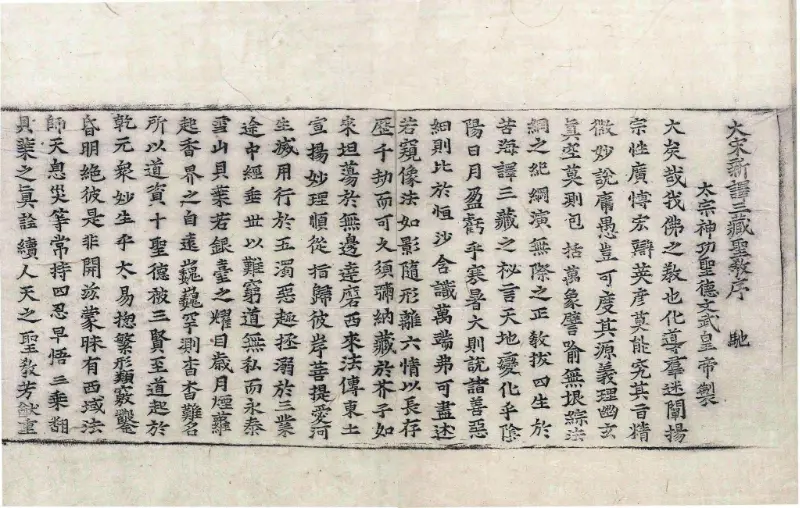 大宋新譯三藏聖教序 馳
太宗神功聖德文武皇帝製
大矣哉我佛之教也化導羣迷闡揚
宗性廣博宏辯英彥莫能究其旨精
微妙說庸愚豈可度其源義理幽玄
眞空莫測包括萬象譬喻無垠綜法
網之紀綱演無際之正教拔四生於
苦海譯三藏之秘言天地變化乎陰
陽日月盈虧乎寒暑大則說諸善惡
細則比於恒沙含識萬端弗可盡述
若窺像法如影隨形離六情以長存
歷千劫而可久須彌納藏於芥子如
來坦蕩於無邊達磨西來法傳東土
宣揚妙理順從指歸彼岸菩提愛河
生滅用行於五濁惡趣拯溺於三業
途中經垂世以難窮道無私而永泰
雪山貝葉若銀臺之耀目歲月煙蘿
起香界之自遠巍巍罕測杳杳難名
所以道資十聖德被三賢至道起於
乾元衆妙生乎太易揔繁形類竅鑿
昏明絕彼是非開茲蒙昧有西域法
師天息災等常持四忍早悟三乘翻
貝葉之眞詮續人天之聖教芳猷重